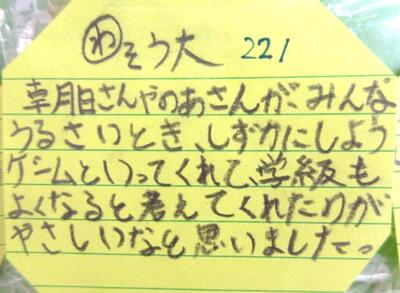 わ そう大 221
朝日さんやのあさんがみんな
うるさいとき、しずかにしよう
ゲームといってくれて、学級も
よくなると考えてくれたのが
やさしいなと思いました。